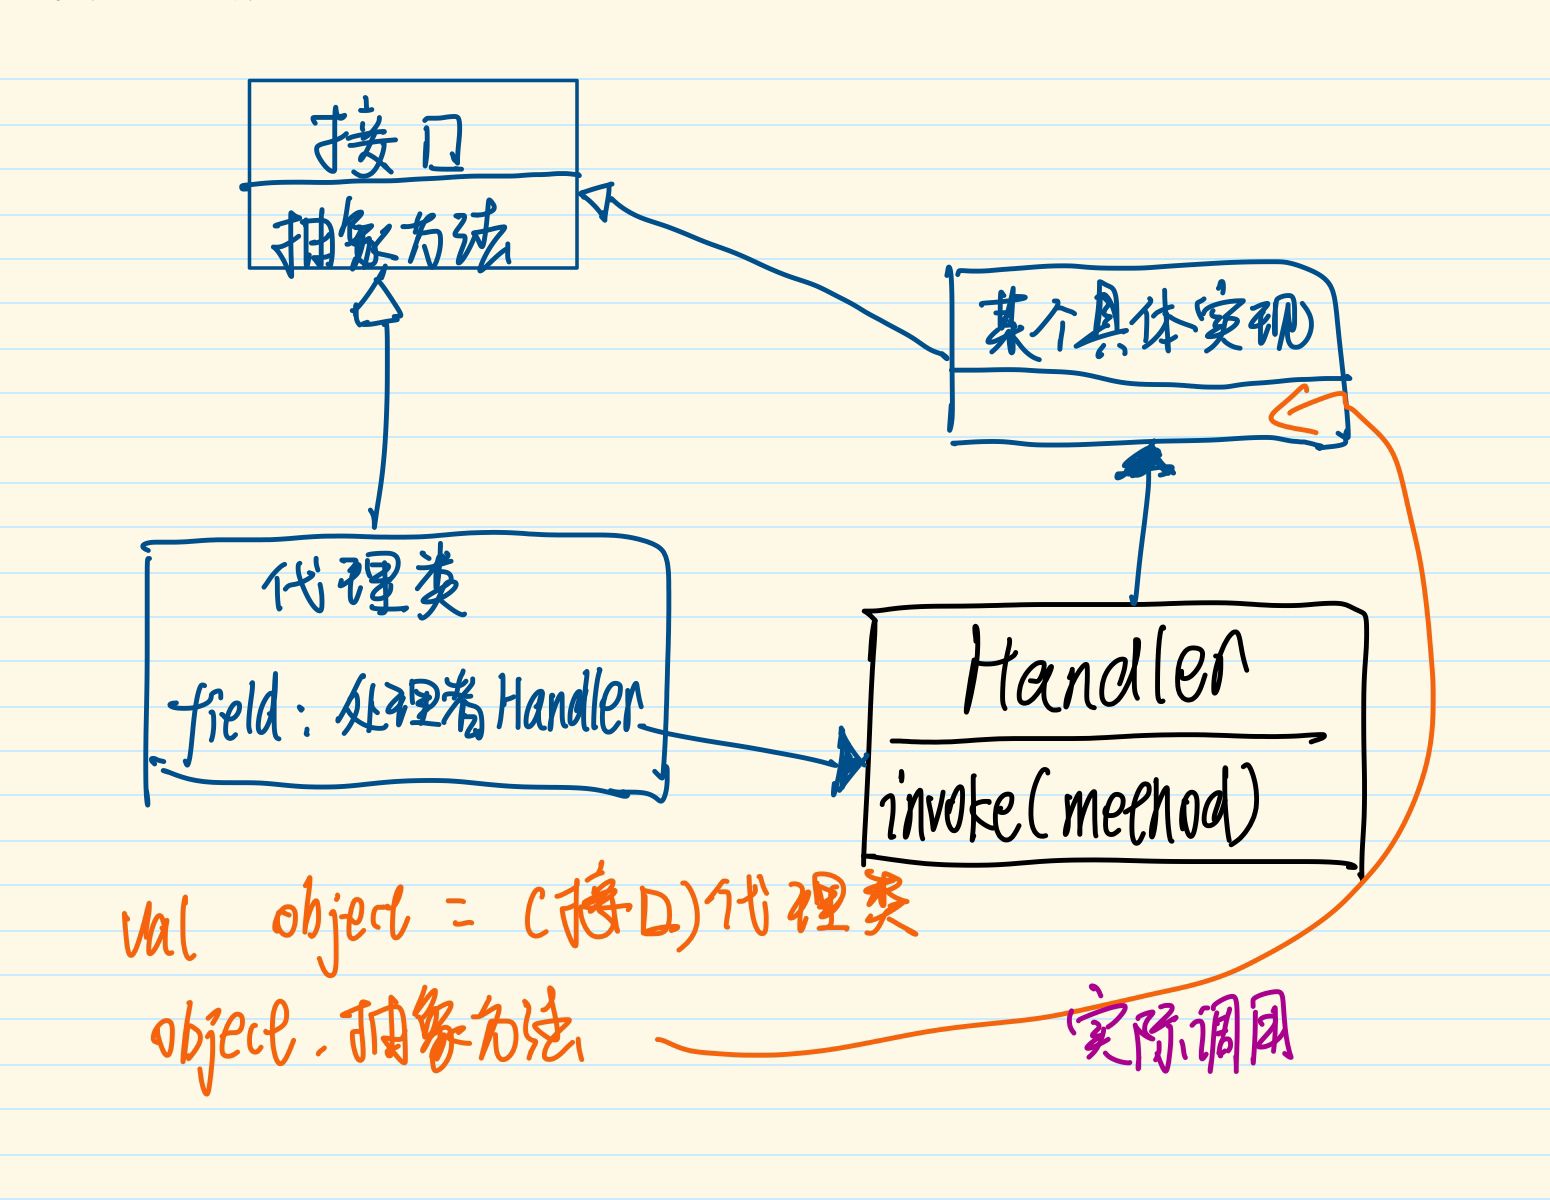 接口
抽象方法
某个具体实现
代理类
field：处理者Handler
Handler
invoke(method)
val object = (接口)代理类
object.抽象方法
实际调用